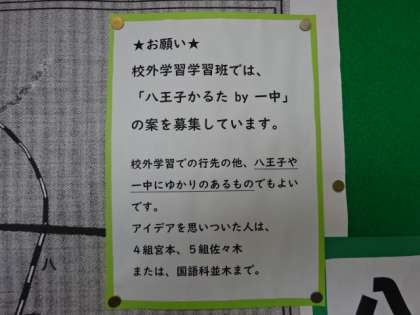 ★お願い★
校外学習学習班では、
「八王子かるた by 一中」
の案を募集しています。
校外学習での行先の他、八王子や
一中にゆかりのあるものでもよい
です。
アイデアを思いついた人は、
４組宮本、５組佐々木
または、国語科並木まで。
八